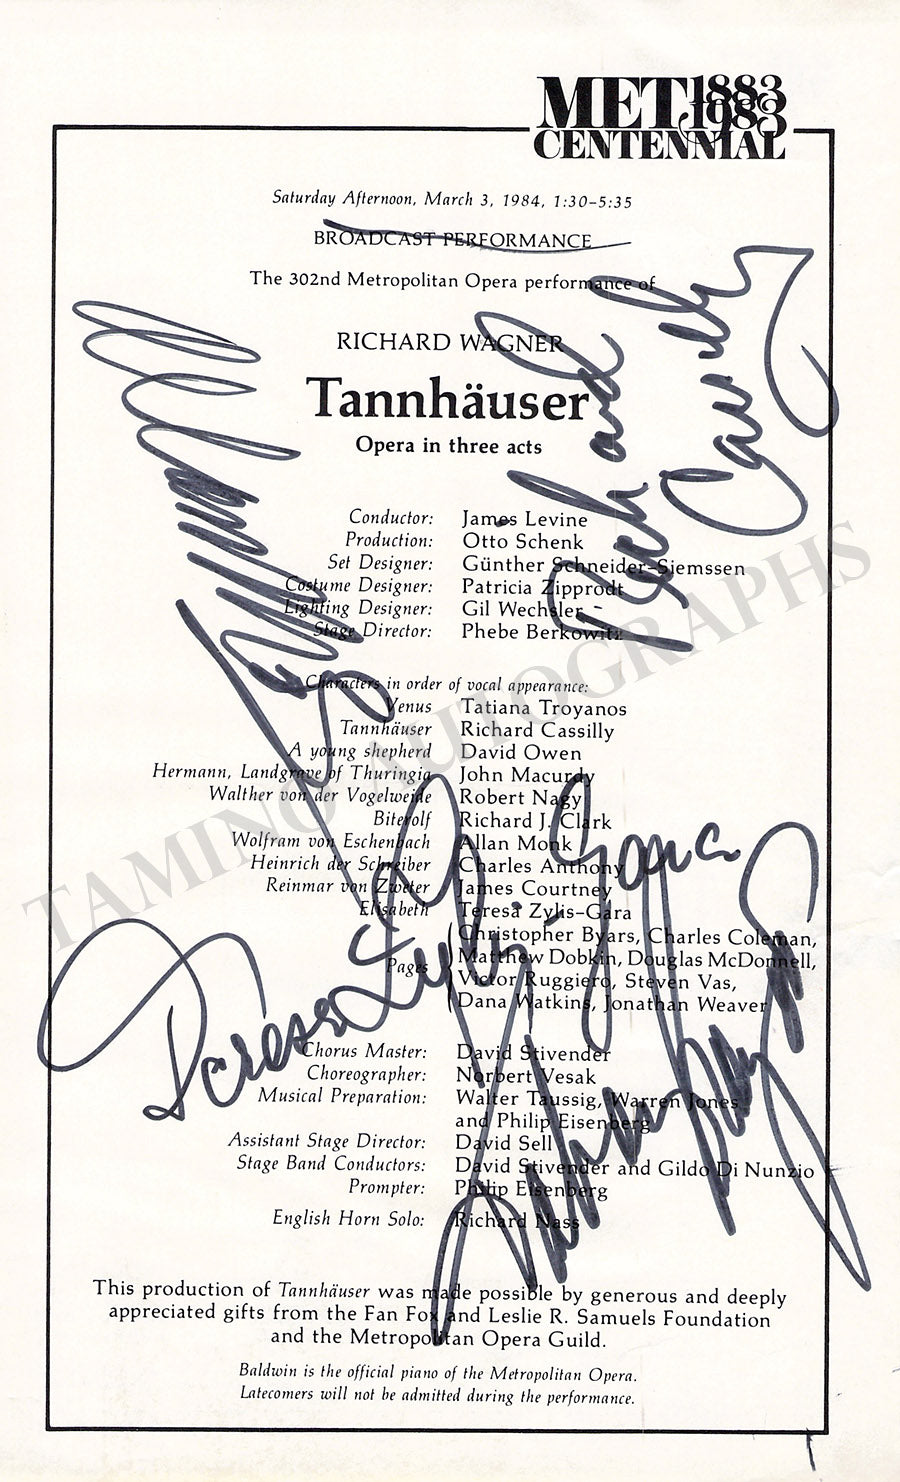 MET 1883
1983
CENTENNIAL
Saturday Afternoon, March 3, 1984, 1:30–5:35
BROADCAST PERFORMANCE
The 302nd Metropolitan Opera performance of
RICHARD WAGNER
Tannhäuser
Opera in three acts
Conductor: James Levine
Production: Otto Schenk
Set Designer: Günther Schneider-Siemssen
Costume Designer: Patricia Zipprodt
Lighting Designer: Gil Wechsler
Stage Director: Phebe Berkowitz
Characters in order of vocal appearance:
Venus Tatiana Troyanos
Tannhäuser Richard Cassilly
A young shepherd David Owen
Hermann, Landgrave of Thuringia John Macurdy
Walther von der Vogelweide Robert Nagy
Biterolf Richard J. Clark
Wolfram von Eschenbach Allan Monk
Heinrich der Schreiber Charles Anthony
Reinmar von Zweter James Courtney
Elisabeth Teresa Zylis-Gara
Christopher Byars, Charles Coleman,
Pages Matthew Dobkin, Douglas McDonnell,
Victor Ruggiero, Steven Vas,
Dana Watkins, Jonathan Weaver
Chorus Master: David Stivender
Choreographer: Norbert Vesak
Musical Preparation: Walter Taussig, Warren Jones
and Philip Eisenberg
Assistant Stage Director: David Sell
Stage Band Conductors: David Stivender and Gildo Di Nunzio
Prompter: Philip Eisenberg
English Horn Solo: Richard Nass
This production of Tannhäuser was made possible by generous and deeply
appreciated gifts from the Fan Fox and Leslie R. Samuels Foundation
and the Metropolitan Opera Guild.
Baldwin is the official piano of the Metropolitan Opera.
Latecomers will not be admitted during the performance.
Richard
Cassilly
Teresa Zylis-Gara
TAMINO AUTOGRAPHS